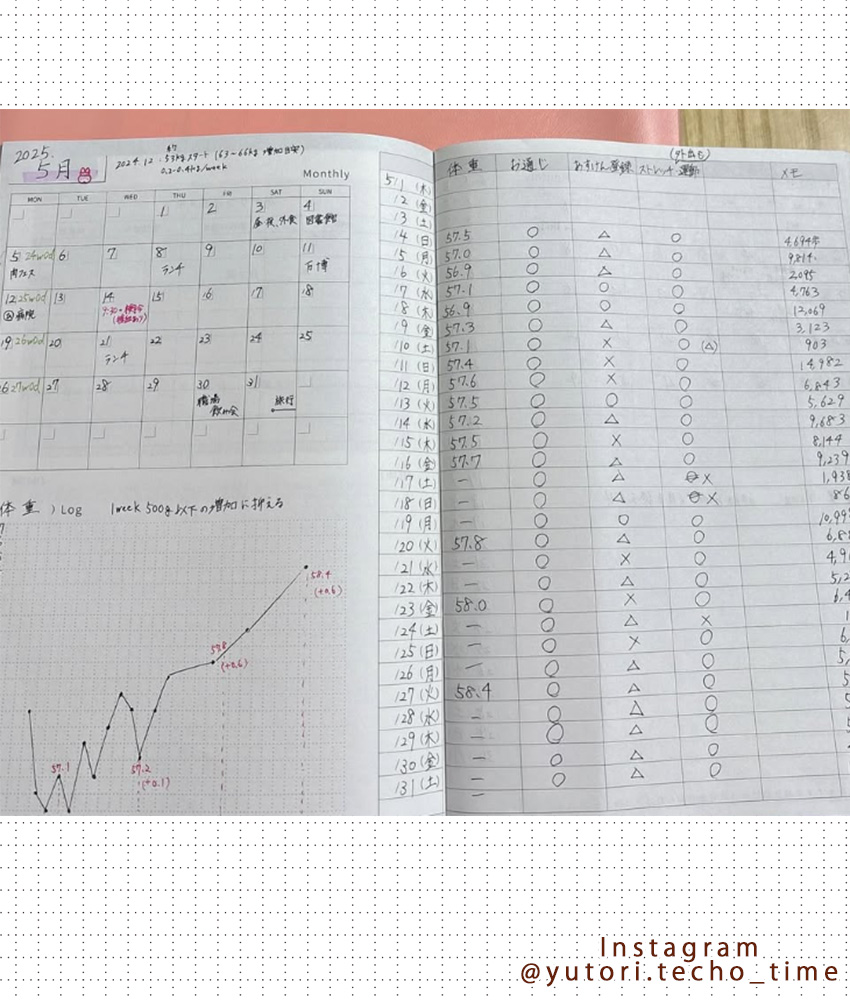 2025.
5月
2024.12 . 53kgスタート (63~66kg 増加目安)
0.2-0.4kg/week
Monthly
MON TUE WED THU FRI SAT SUN
1 2 3 4
外食 図書館
5 24wod 6 7 8 9 10 11
肉フェス ランチ 万博
12 25wod 13 14 15 16 17 18
病院 9:30~
19 26wod 20 21 22 23 24 25
ランチ
26 27wod 27 28 29 30 31
飲み会 旅行
体重 ) Log 1week 500g 以下の増加に抑える
58.4
(+0.6)
57.8
(+0.6)
57.1
57.2
(+0.1)
(外出も)
体重 お通じ あすけん登録 ストレッチ・運動 メモ
5/1 (木)
/2 (金)
/3 (土)
/4 (日) 57.5 ○ △ ○ 4,694歩
/5 (月) 57.0 ○ △ ○ 9,814
/6 (火) 56.9 ○ △ ○ 2,095
/7 (水) 57.1 ○ ○ ○ 4,763
/8 (木) 56.9 ○ ○ ○ 12,069
/9 (金) 57.3 ○ △ ○ 3,123
/10 (土) 57.1 ○ × ○ (△) 903
/11 (日) 57.4 ○ × ○ 14,982
/12 (月) 57.6 ○ × ○ 6,843
/13 (火) 57.5 ○ ○ ○ 5,629
/14 (水) 57.2 ○ △ ○ 9,683
/15 (木) 57.5 ○ × ○ 8,144
/16 (金) 57.7 ○ △ ○ 9,239
/17 (土) - ○ △ × 1,938
/18 (日) - ○ △ × 86
/19 (月) - ○ ○ ○ 10,99
/20 (火) 57.8 ○ △ ○
/21 (水) - ○ × ○
/22 (木) - ○ △ ○
/23 (金) 58.0 ○ × ○
/24 (土) - ○ △ ×
/25 (日) - ○ × ○
/26 (月) - ○ △ ○
/27 (火) 58.4 ○ △ ○
/28 (水) - ○ △ ○
/29 (木) - ○ △ ○
/30 (金) - ○ △ ○
/31 (土) - ○ △ ○
Instagram
@yutori.techo_time